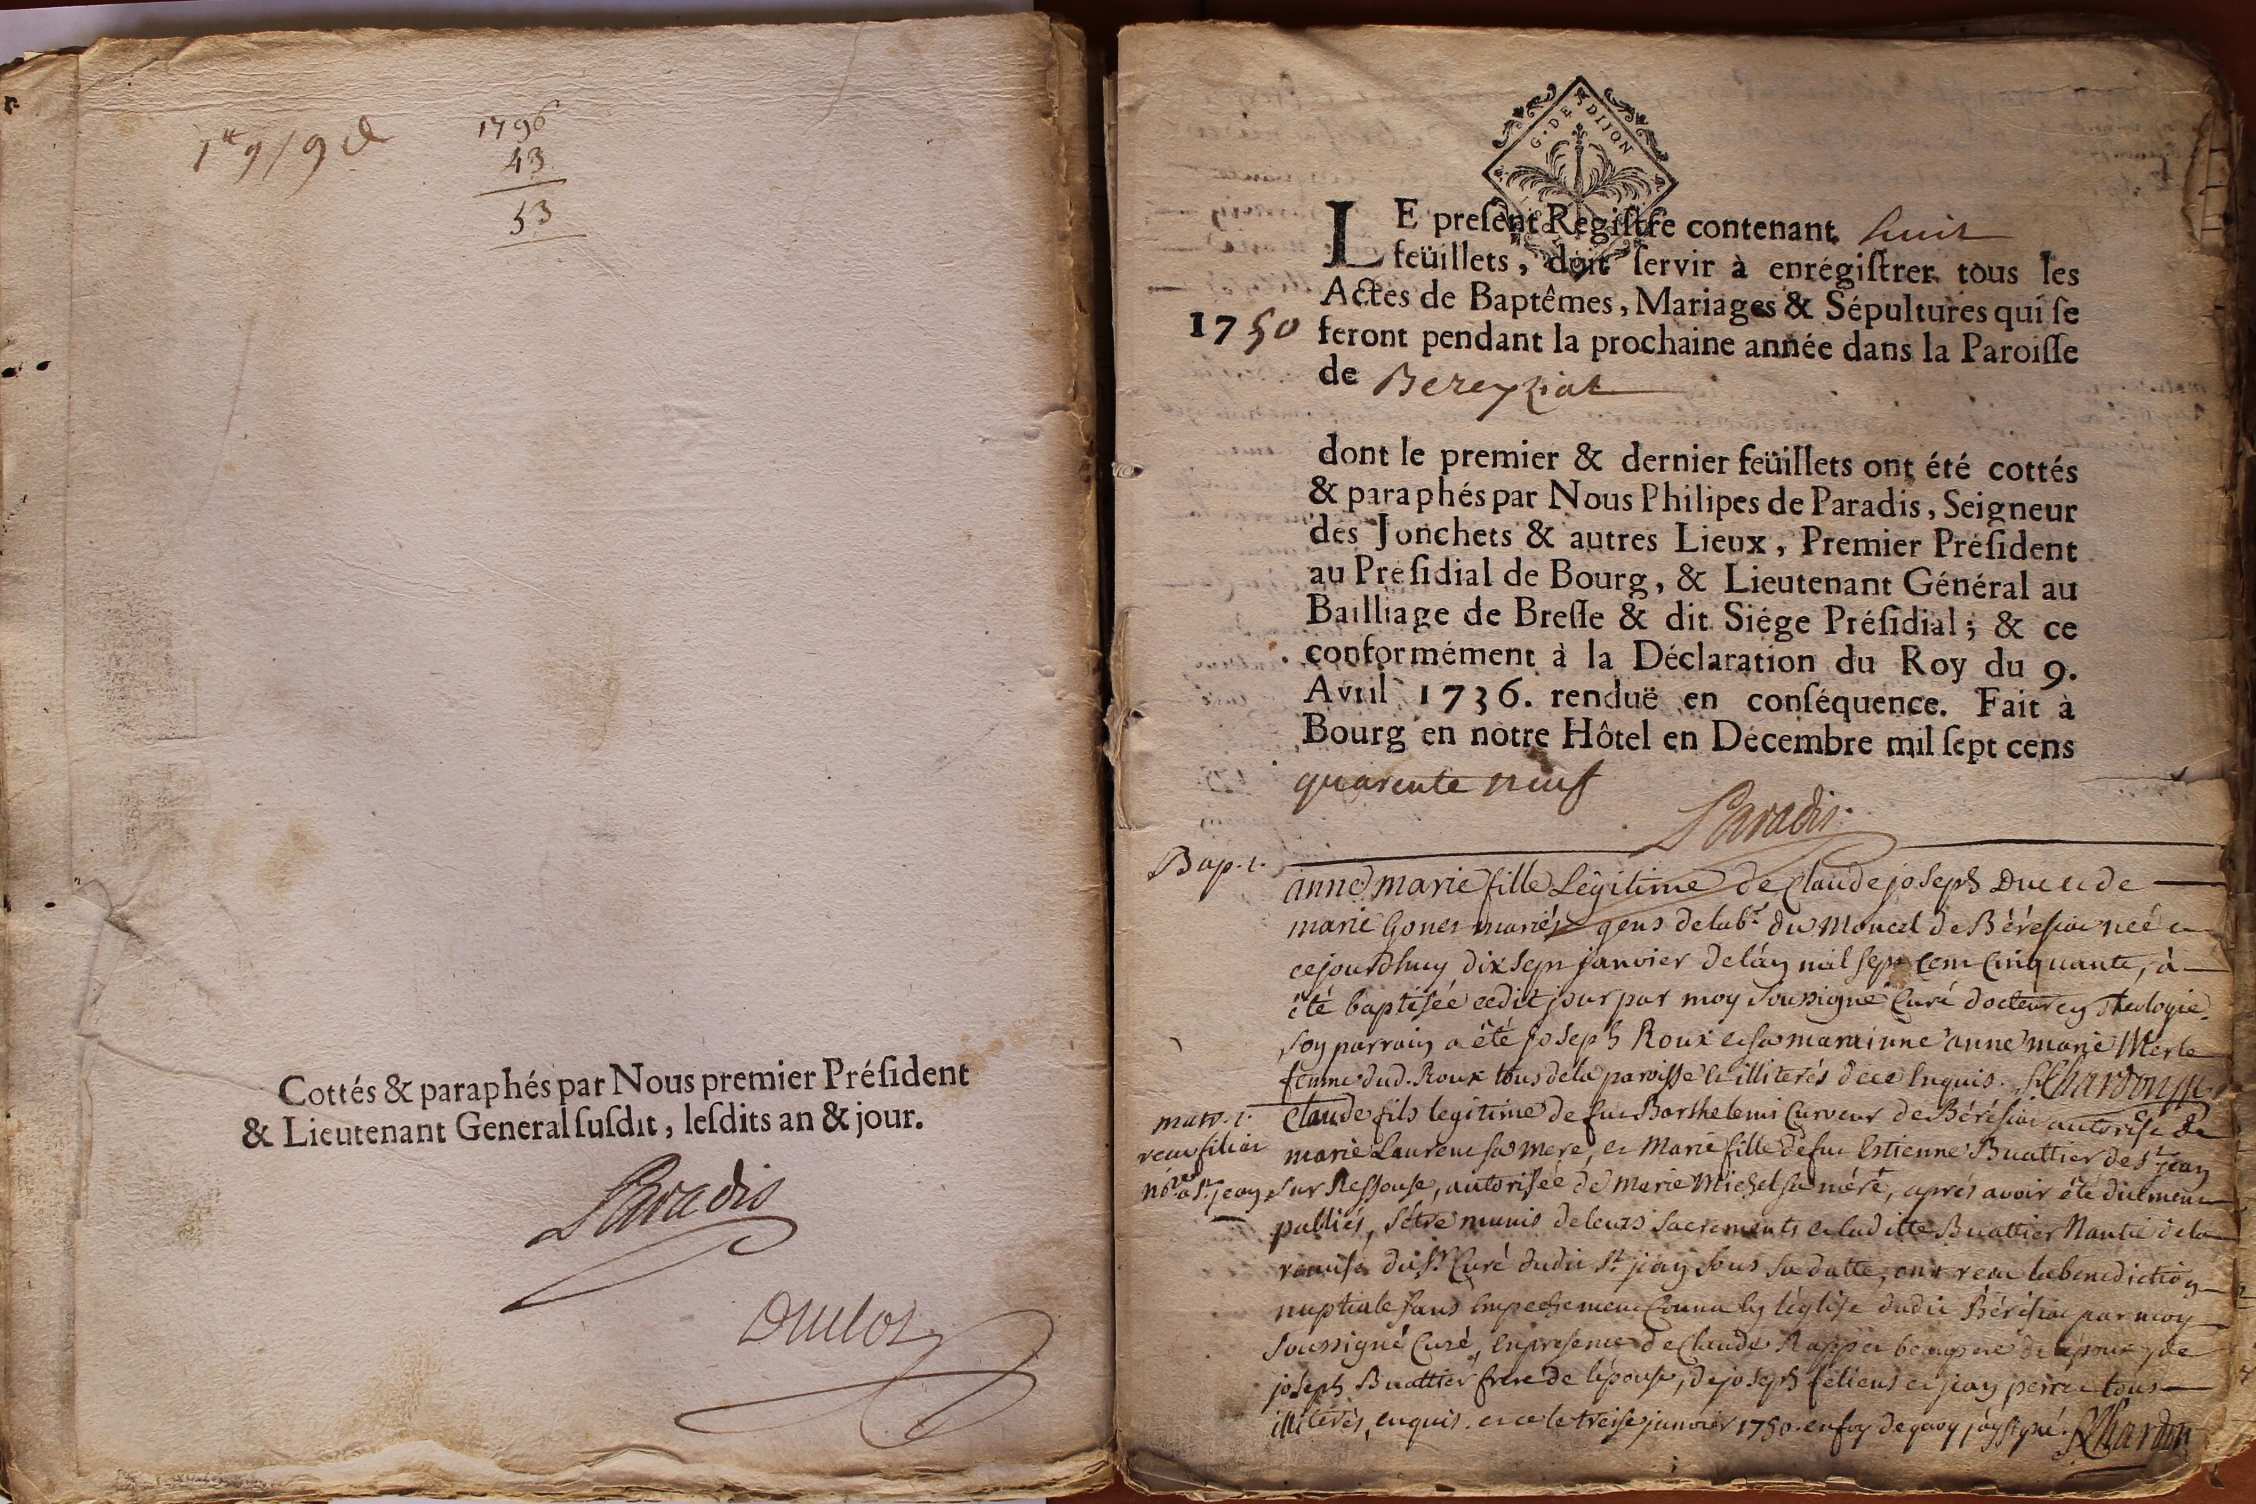 1796
43
53
Cottés & paraphés par Nous premier Préſident
& Lieutenant General ſuſdit, leſdits an & jour.
Paradis
Duclos
G. DE DIJON
LE preſent Regiſtre contenant huit
feüillets, doit ſervir à enrégiſtrer tous les
Actes de Baptêmes, Mariages & Sépultures qui ſe
1750 feront pendant la prochaine année dans la Paroiſſe
de Bereyziat
dont le premier & dernier feüillets ont été cottés
& paraphés par Nous Philipes de Paradis, Seigneur
des Jonchets & autres Lieux, Premier Préſident
au Préſidial de Bourg, & Lieutenant Général au
Bailliage de Breſſe & dit Siége Préſidial; & ce
conformément à la Déclaration du Roy du 9.
Avril 1736. renduë en conſéquence. Fait à
Bourg en notre Hôtel en Décembre mil ſept cens
quarente neuf
Paradis
Bap. 1.
anne marie fille Légitime de Claude joseph Duc et de
marie Gonet mariés gens de lab.r du Moncel de Bérésiat née
cejourdhuy dix sept janvier de l'an mil sept cent cinquante, à
été baptisée cedit jour par moy soussigné Curé docteur en theologie.
son parrain a été joseph Roux et sa marainne anne marie Merle
femme dud. Roux tous de la paroisse et illiterés de ce enquis. Chardon
mar. 1.
Claude fils legitime de fut Barthelemi Curveur de Bérésiat autorisé de
marie Laurent sa mere, et Marie fille de fut Estienne Buattier de St jean
a St jean
sur Ressouse, autorisée de Marie Michel sa mére, aprés avoir été duement
publiés, s'étre munis de leurs sacrements et laditte Buattier Nantie de la
remise du Sr Curé dudit St jean sous sa datte, ont recu la benediction
nuptiale sans empechement connu en l'église dudit Bérésiat par moy
soussigné Curé, en presence de Claude beaupere de l'époux, de
joseph Buattier frere de l'épouse, de joseph et jean tous
illiterés, enquis. et ce le treise janvier 1750. en foy de quoy j'ay signé. Chardon